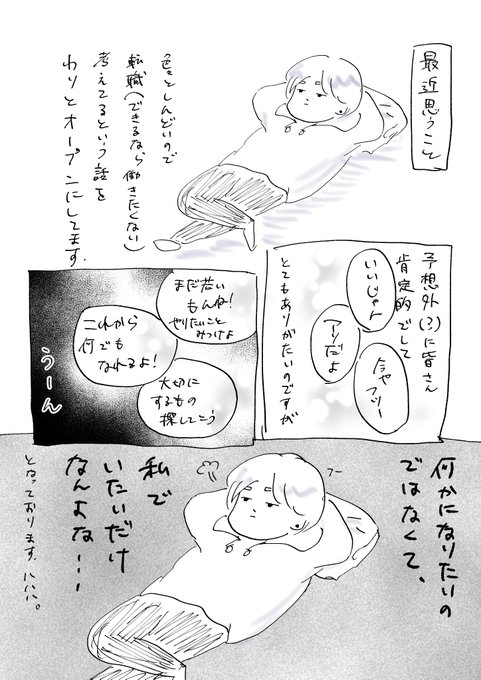 最近思うこと
色々としんどいので
転職(できるなら働きたくない)
考えてるという話を
わりとオープンにしてます。
予想外(?)に皆さん
肯定的でして
いいじゃん
アリだよ
今やフツー
とてもありがたいのですが
まだ若い
もんね!
やりたいこと
みつけよ
これから
何でも
なれるよ!
大切に
するもの
探してこう
うーん
何かになりたいの
ではなくて、
私で
いたいだけ
なんよな…
となっております。ハハハ。